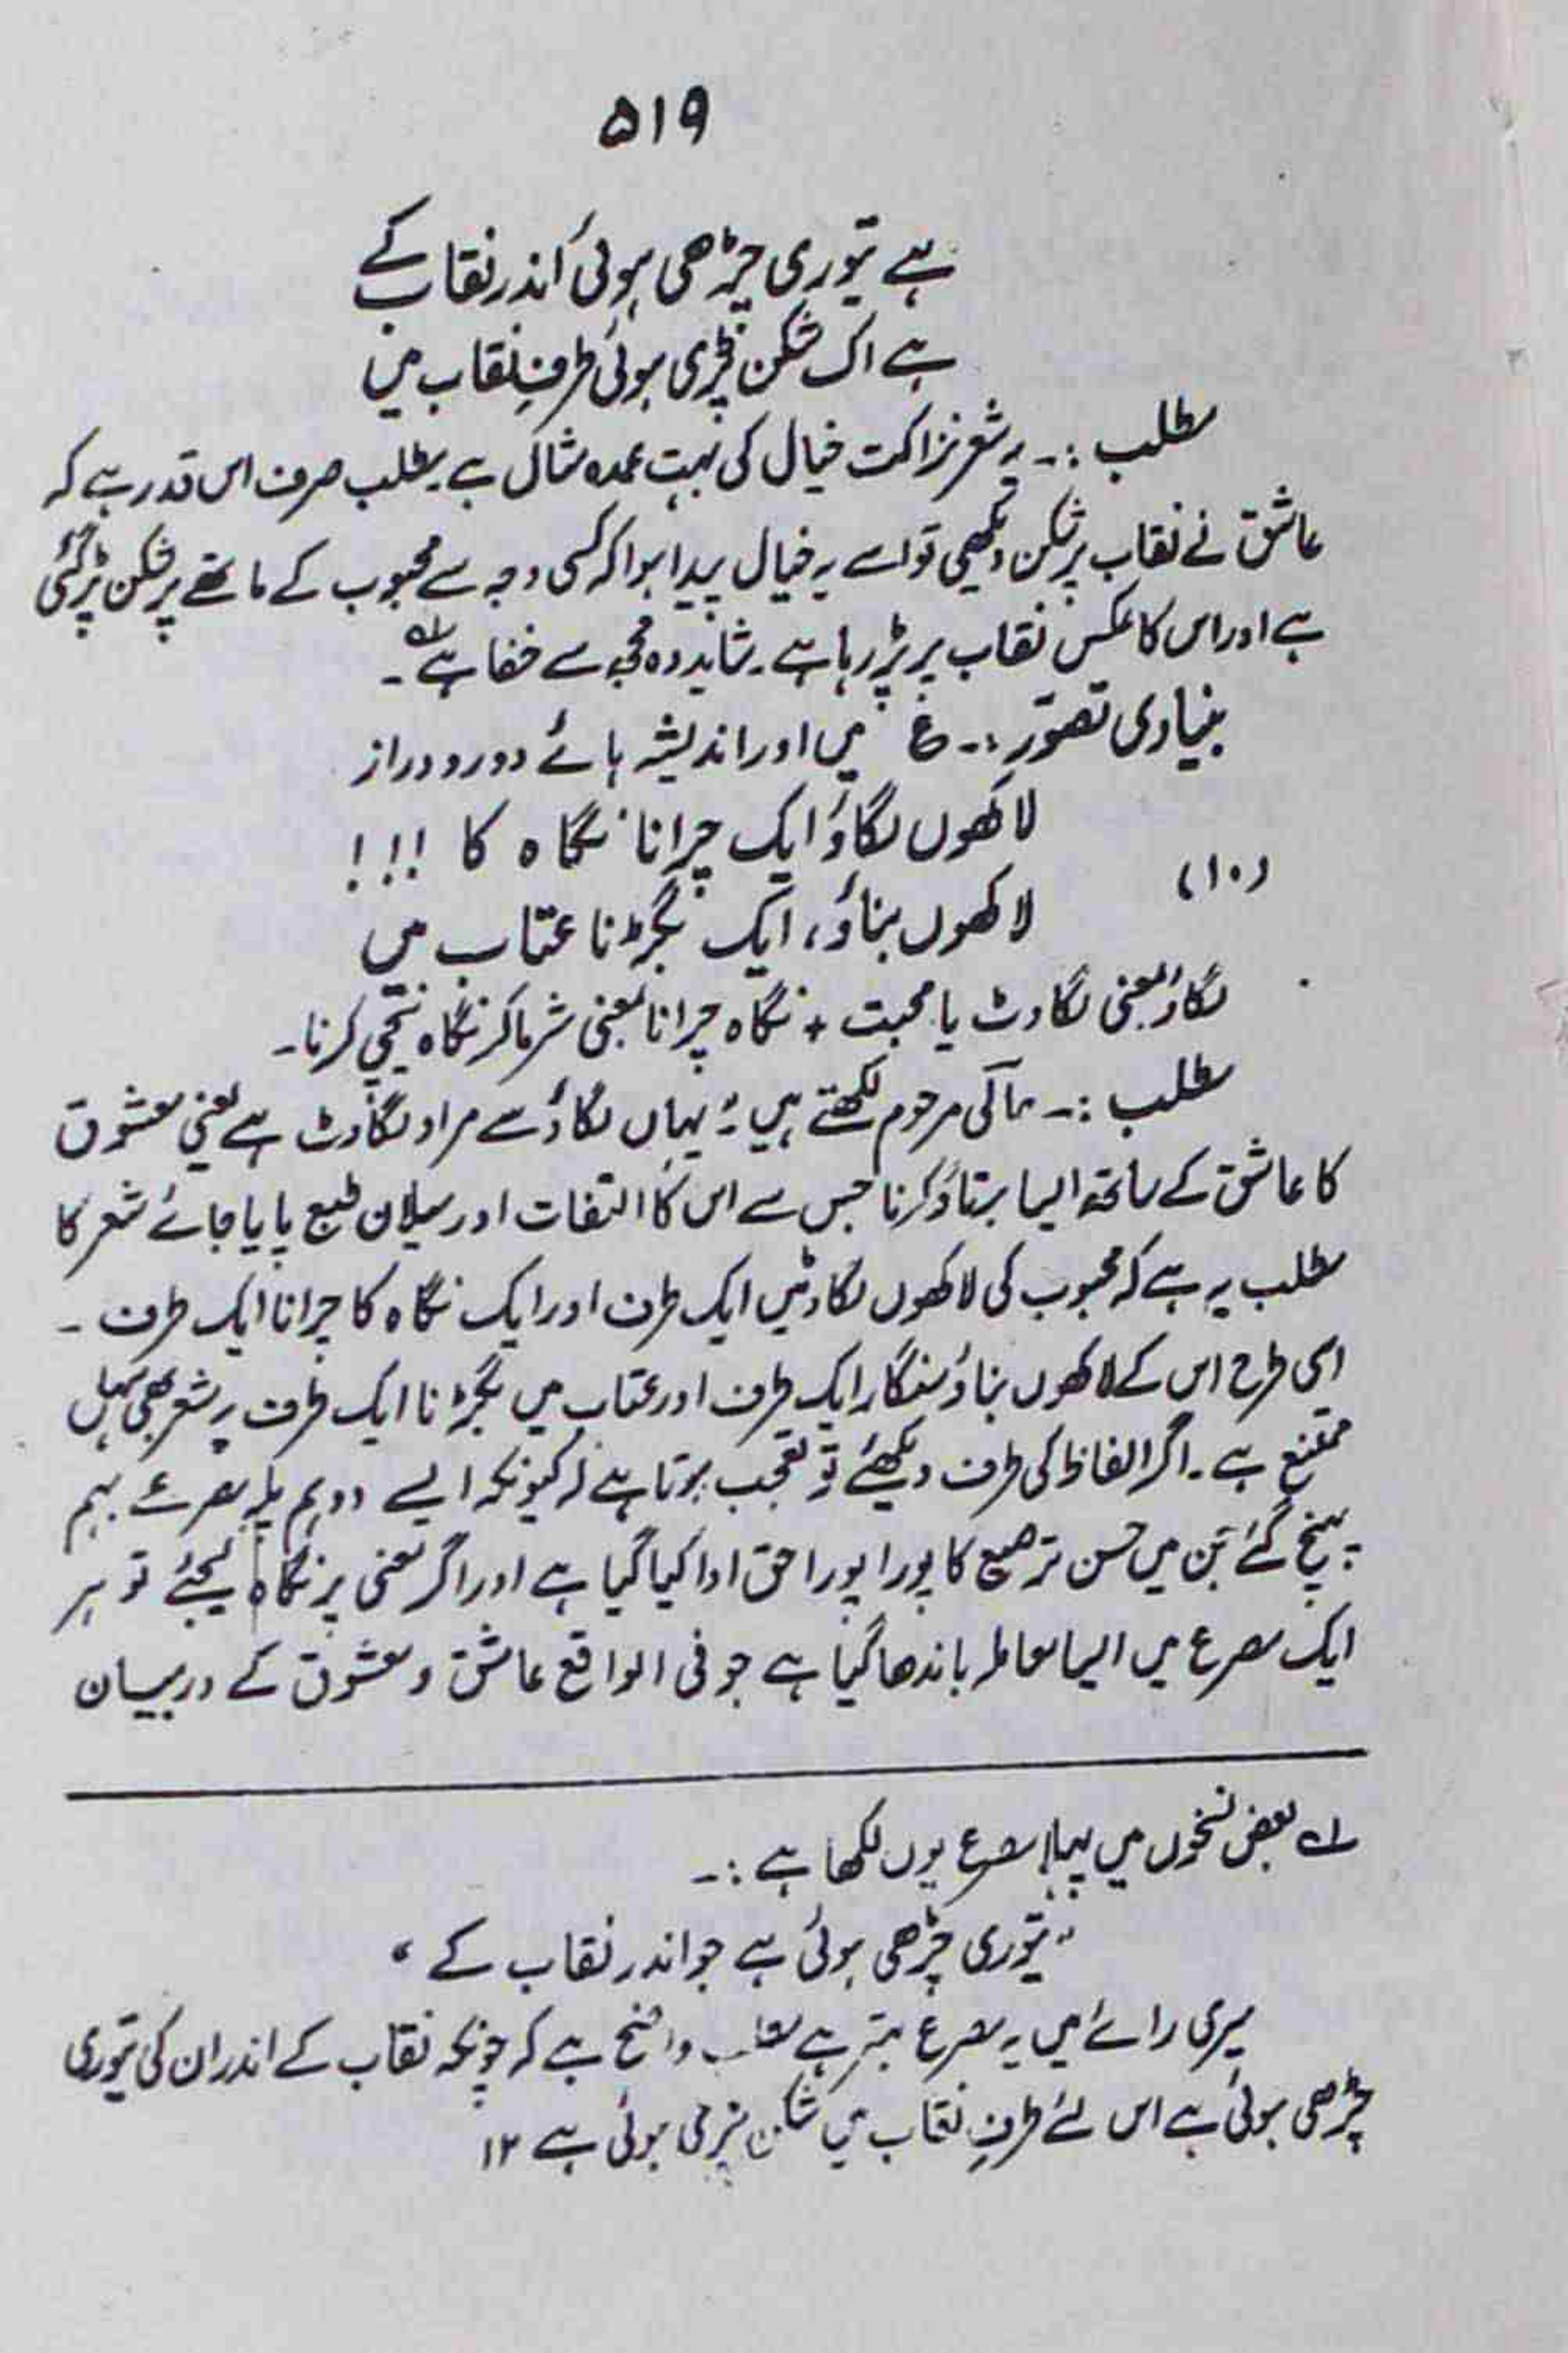 ۵۱۹
ہے تیوری چڑھی ہوئی اندر نقاب کے
ہے اک شکن پڑی ہوئی طرفِ نقاب میں
مطلب :۔ یہ شعر نزاکت خیال کی بہت عمدہ مثال ہے۔ مطلب صرف اس قدر ہے کہ
عاشق نے نقاب پر شکن دیکھی تو اسے یہ خیال پیدا ہوا کہ کسی وجہ سے محبوب کے ماتھے پر شکن پڑ گئی
ہے اور اس کا عکس نقاب پر پڑ رہا ہے۔ شاید وہ مجھ سے خفا ہے ؎۱۔
بنیادی تصوّر :۔ ع میں اور اندیشہ ہائے دور و دراز
لاکھوں لگاؤ ایک چرانا نگاہ کا !!!
(۱۰) لاکھوں بناؤ، ایک بگڑنا عتاب میں
لگاؤ بمعنی لگاوٹ یا محبت + نگاہ چرانا بمعنی شرما کر نگاہ نیچی کرنا۔
مطلب :۔ حالی مرحوم لکھتے ہیں "یہاں لگاؤ سے مراد لگاوٹ ہے یعنی معشوق
کا عاشق کے ساتھ ایسا برتاؤ کرنا جس سے اس کا التفات اور میلان طبع پایا جائے شعر کا
مطلب یہ ہے کہ محبوب کی لاکھوں لگاوٹیں ایک طرف اور ایک نگاہ کا چرانا ایک طرف ۔
اسی طرح اس کے لاکھوں بناؤ سنگار ایک طرف اور عتاب میں بگڑنا ایک طرف یہ شعر بھی سہل
ممتنع ہے۔ اگر الفاظ کی طرف دیکھئے تو تعجب ہوتا ہے کہ کیونکہ ایسے دو ہم پلہ مصرعے بہم
پہنچ گئے جن میں حسن ترصیع کا پورا پورا حق ادا کیا گیا ہے اور اگر معنی پر نگاہ کیجئے تو ہر
ایک مصرع میں ایسا معاملہ باندھا گیا ہے جو فی الواقع عاشق و معشوق کے درمیان
؎۱ بعض نسخوں میں پہلا مصرع یوں لکھا ہے :۔
"تیوری چڑھی ہوئی ہے جو اندر نقاب کے"
میری رائے میں یہ مصرع بہتر ہے مطلب واضح ہے کہ چونکہ نقاب کے اندر ان کی تیوری
چڑھی ہوئی ہے اس لئے طرفِ نقاب میں شکن پڑی ہوئی ہے ۱۲